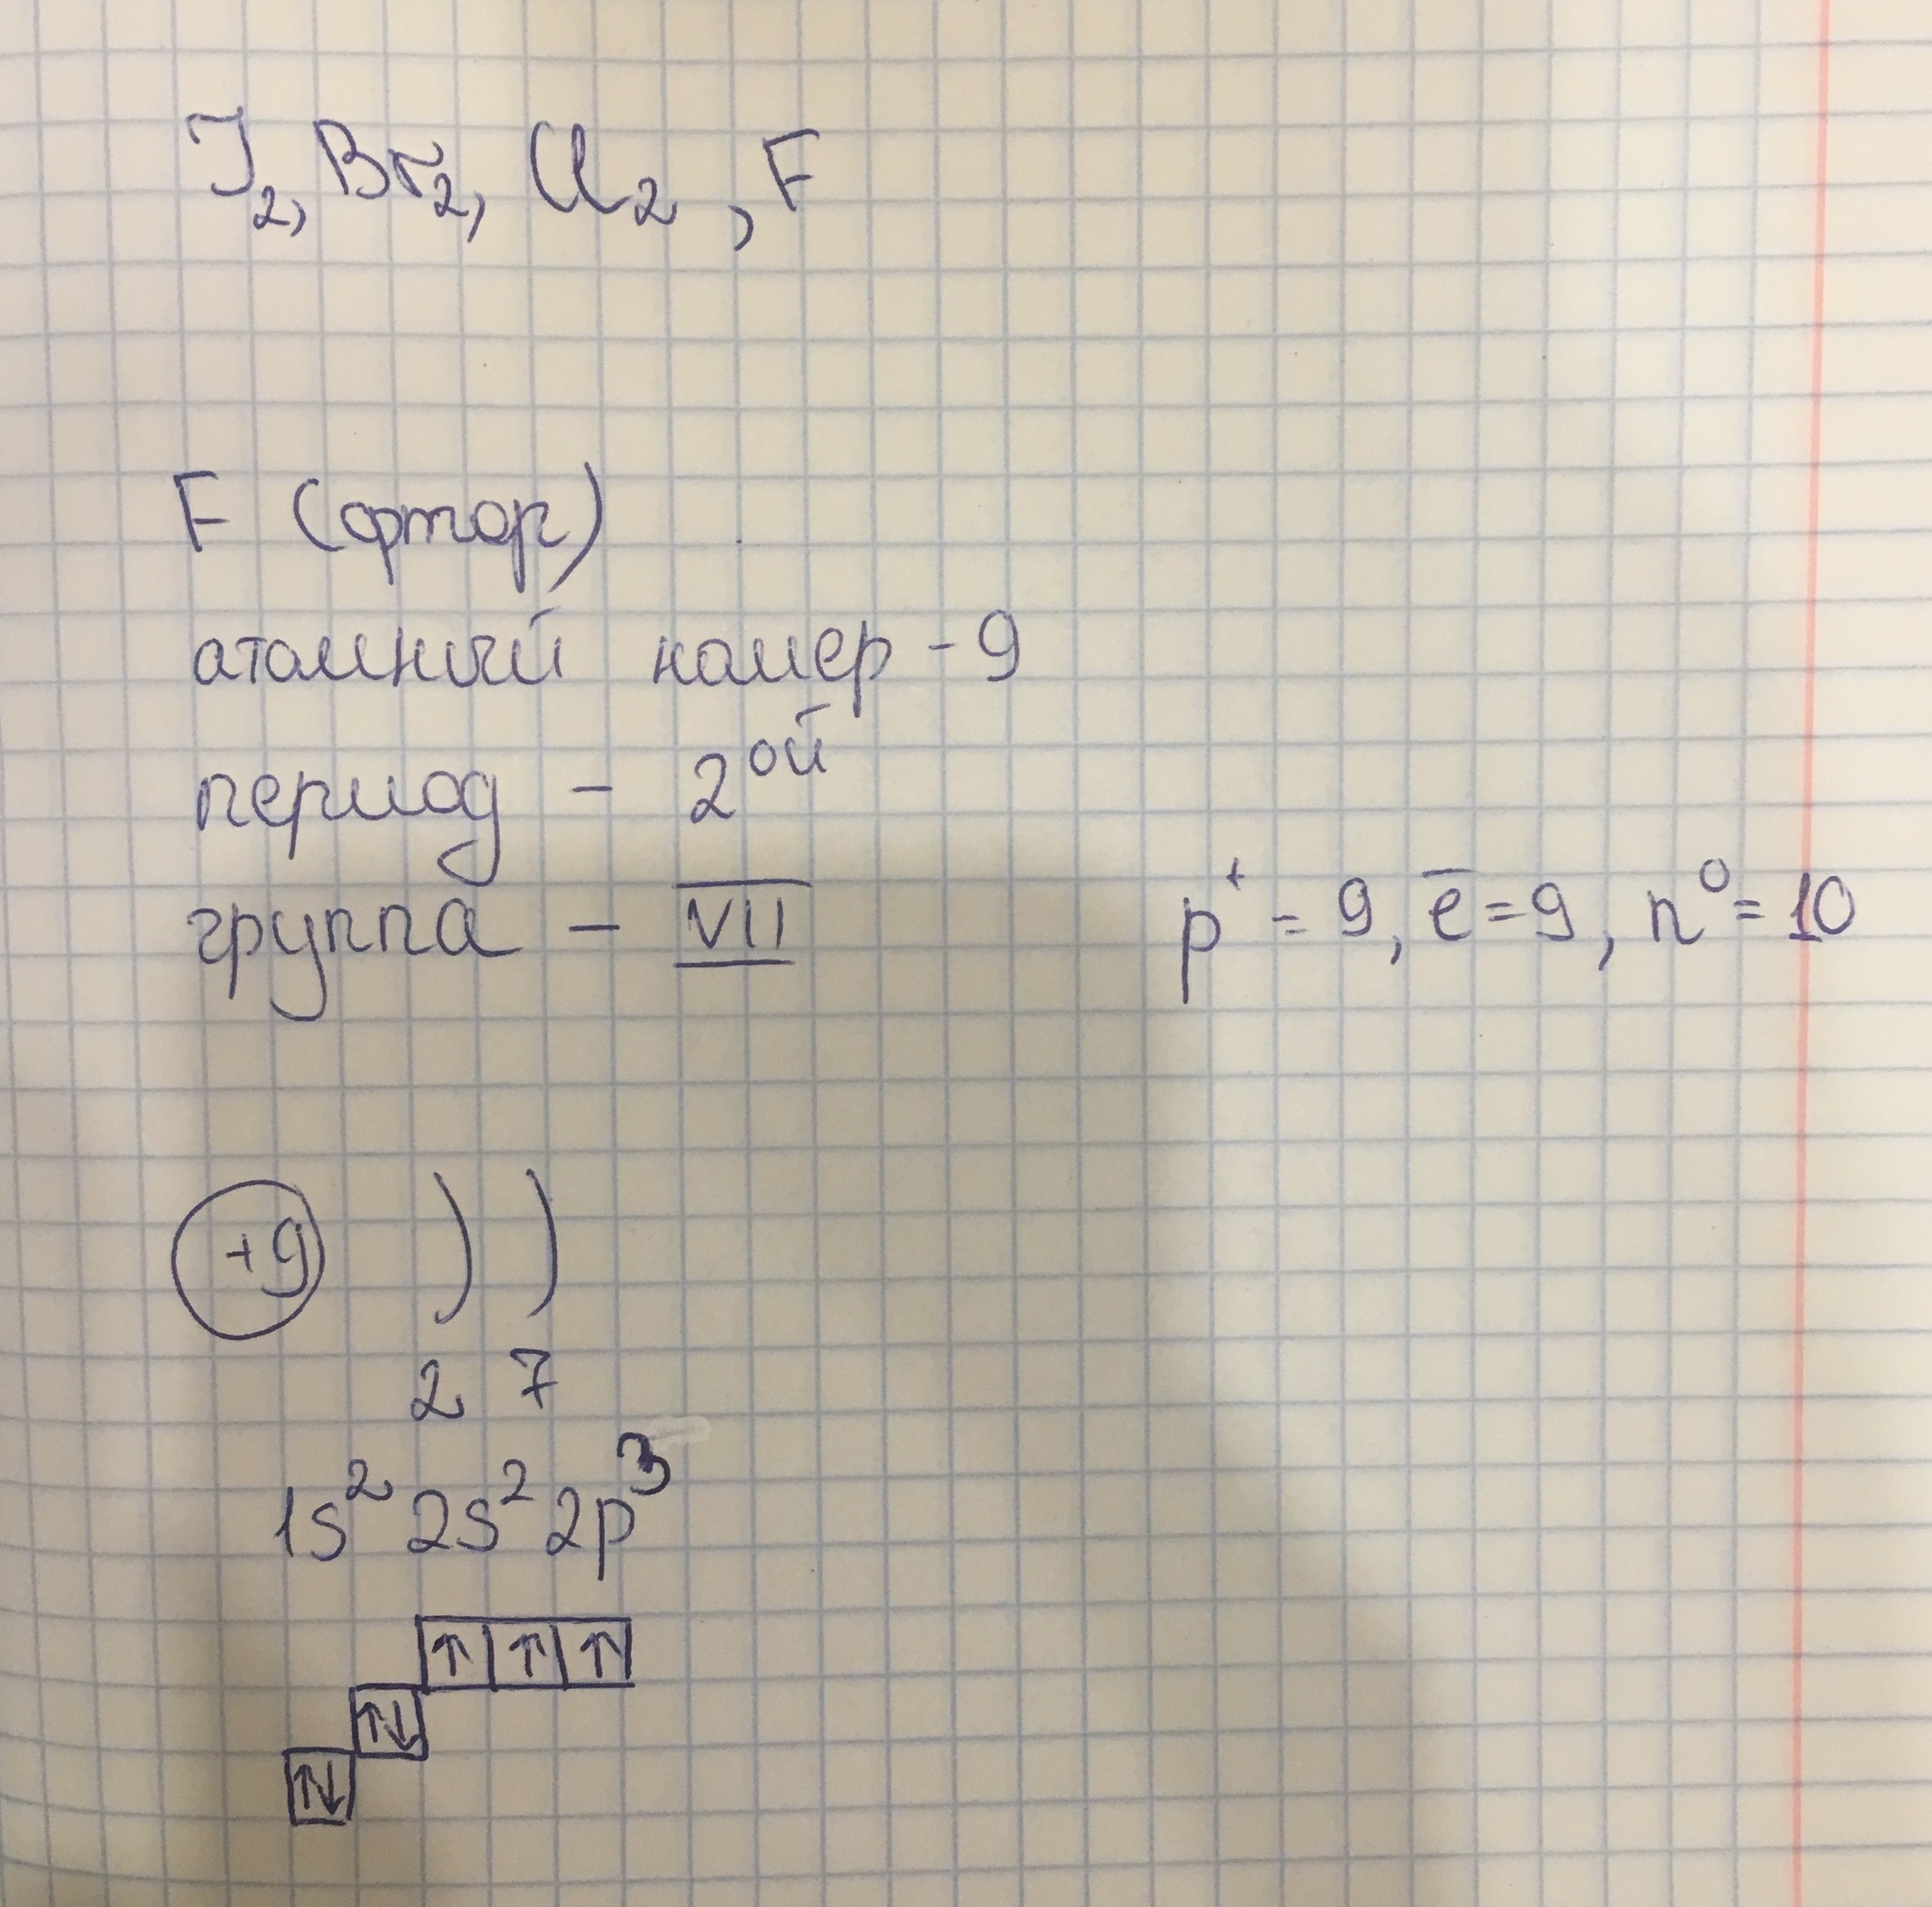 J₂, Br₂, Cl₂, F
F (фтор)
атомный номер - 9
период - 2ой
группа - VII
p⁺ = 9, e̅ = 9, n⁰ = 10
+9 ) )
2 7
1s² 2s² 2p³
↑ ↑ ↑
↑↓
↑↓